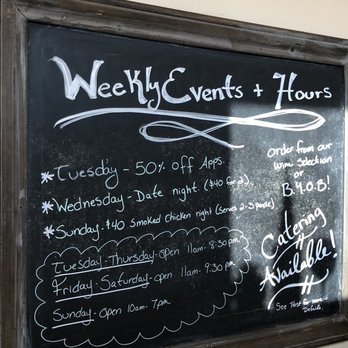 Weekly Events + Hours
*Tuesday - 50% off Apps.
*Wednesday - Date night. ($40 for 2).
*Sunday: $40 Smoked Chicken night (Serves 2-3 people)
Tuesday - Thursday - open 11am - 8:30pm
Friday - Saturday - open 11am - 9:30pm
Sunday - open 10am - 7pm.
order from our
Wine Selection
or
B.Y.O.B!
Catering
Available!
See Host for more
Details.